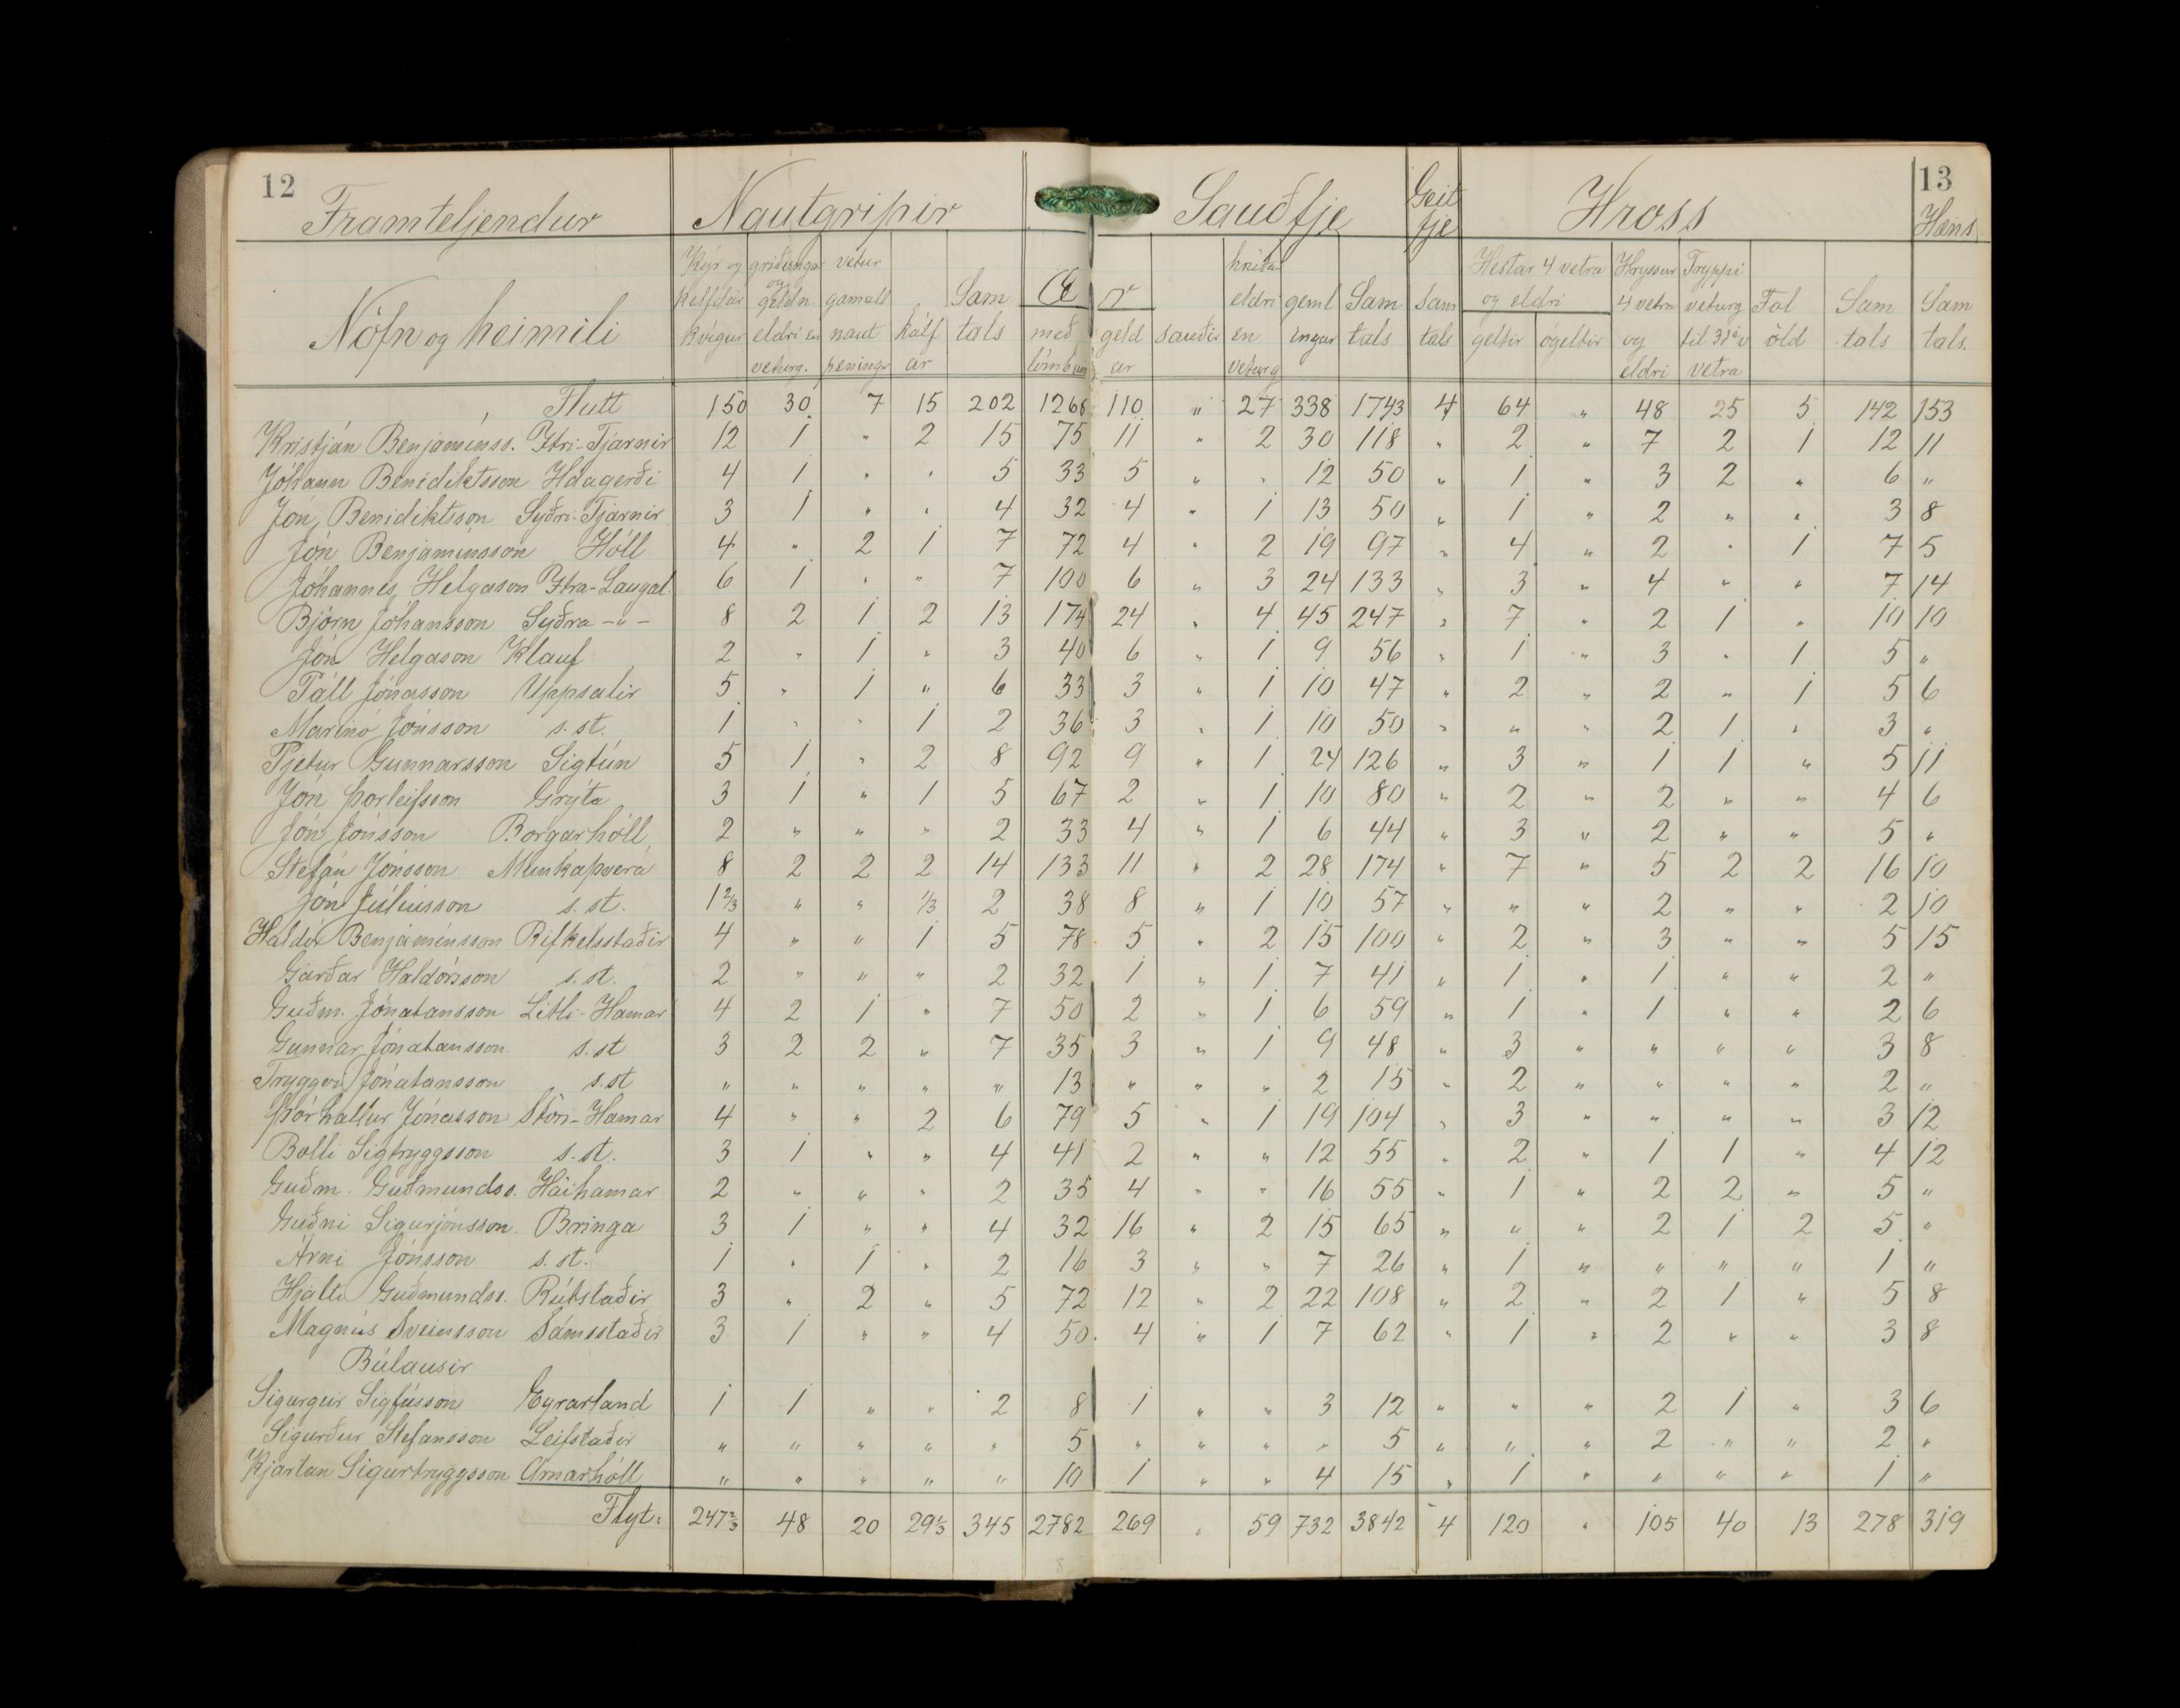 12 13
Framteljendur Nautgripir Sauðfje Geit fje Hross Hæns
Nöfn og heimili
Kýr og kelfdar kvígur
griðungar og geldn. eldri en veturg.
vetur gamall naut peningr
kálf ar
Sam tals
Æ r
með lömbum
geld ar
sauðir
hrútar eldri en veturg
geml ingar
Sam tals
Sam tals
Hestar 4 vetra og eldri
geltir ógeltir
Hryssur 4 vetra og eldri
Tryppi veturg til vetra
Fol öld
Sam tals
Sam tals.
Flutt 150 30 7 15 202 1268 110 " 27 338 1743 4 64 " 48 25 5 142 153
Kristján Benjamínss. Ytri-Tjarnir 12 1 " 2 15 75 11 " 2 30 118 " 2 " 7 2 1 12 11
Jóhann Benidiktsson Hdagerði 4 1 " " 5 33 5 " " 12 50 " 1 " 3 2 " 6 "
Jón Benidiktsson Syðri-Tjarnir 3 1 " " 4 32 4 " 1 13 50 " 1 " 2 " " 3 8
Jón Benjamínsson Hóll 4 " 2 1 7 72 4 " 2 19 97 " 4 " 2 " 1 7 5
Jóhannes Helgason Ytra-Laugal. 6 1 " " 7 100 6 " 3 24 133 " 3 " 4 " " 7 14
Björn Jóhansson Syðra -"- 8 2 1 2 13 174 24 " 4 45 247 " 7 " 2 1 " 10 10
Jón Helgason Klauf 2 " 1 " 3 40 6 " 1 9 56 " 1 " 3 " 1 5 "
Páll Jónasson Uppsalir 5 " 1 " 6 33 3 " 1 10 47 " 2 " 2 " 1 5 6
Marino Jónsson s. st. 1 " " 1 2 36 3 " 1 10 50 " " " 2 1 " 3 "
Pjetur Gunnarsson Sigtún 5 1 " 2 8 92 9 " 1 24 126 " 3 " 1 1 " 5 11
Jón Þorleifsson Grýta 3 1 " 1 5 67 2 " 1 10 80 " 2 " 2 " " 4 6
Jón Jónsson Borgarhóll 2 " " " 2 33 4 " 1 6 44 " 3 " 2 " " 5 "
Stefán Jónsson Munkaþverá 8 2 2 2 14 133 11 " 2 28 174 " 7 " 5 2 2 16 10
Jón Júlíusson s. st. 1 2/3 " " 1/3 2 38 8 " 1 10 57 " " " 2 " " 2 10
Haldór Benjamínsson Rifkelsstaðir 4 " " 1 5 78 5 " 2 15 100 " 2 " 3 " " 5 15
Garðar Haldórsson s. st. 2 " " " 2 32 1 " 1 7 41 " 1 " 1 " " 2 "
Guðm. Jónatansson Litli-Hamar 4 2 1 " 7 50 2 " 1 6 59 " 1 " 1 " " 2 6
Gunnar Jónatansson s. st 3 2 2 " 7 35 3 " 1 9 48 " 3 " " " " 3 8
Tryggvi Jónatansson s. st " " " " " 13 " " " 2 15 " 2 " " " " 2 "
Þórhallur Jónasson Stóri-Hamar 4 " " 2 6 79 5 " 1 19 104 " 3 " " " " 3 12
Bolli Sigtryggsson s. st. 3 1 " " 4 41 2 " " 12 55 " 2 " 1 1 " 4 12
Guðm. Guðmundss. Háihamar 2 " " " 2 35 4 " " 16 55 " 1 " 2 2 " 5 "
Guðni Sigurjónsson. Bringa 3 1 " " 4 32 16 " 2 15 65 " " " 2 1 2 5 "
Árni Jónsson s. st. 1 " 1 " 2 16 3 " " 7 26 " 1 " " " " 1 "
Hjalti Guðmundss. Rútstaðir 3 " 2 " 5 72 12 " 2 22 108 " 2 " 2 1 " 5 8
Magnús Sveinsson Sámsstaðir 3 1 " " 4 50 4 " 1 7 62 " 1 " 2 " " 3 8
Búlausir
Sigurgeir Sigfússon Eyrarland 1 1 " " 2 8 1 " " 3 12 " " " 2 1 " 3 6
Sigurður Stefansson Leifstaðir " " " " " 5 " " " " 5 " " " 2 " " 2 "
Kjartan Sigurtryggsson Arnarhóll " " " " " 10 1 " " 4 15 " 1 " " " " 1 "
Flyt: 247 2/3 48 20 29 1/3 345 2782 269 " 59 732 3842 4 120 " 105 40 13 278 319